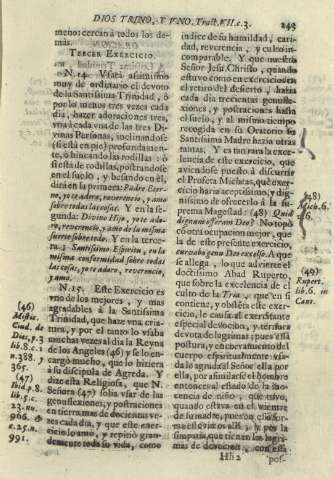 DIOS TRINO, Y VNO. Trat. VII. c. 3. 243
menor cercanà todos los de-
màs.
TERCER EXERCICIO
N. 14. Vsarà asimismo
muy de ordinario el devoto
de la Santissima Trinidad, ò
por lo menos tres vezes cada
dia, hazer adoraciones tres,
vna à cada vna de las tres Di-
vinas Personas, inclinandose
(si està en pie) profundamen-
te, ò hincando las rodillas: ò
si està de rodillas, postrandose
en el suelo, y besando en èl,
dirà en la primera: Padre Eter-
no, yo te adoro, reverencio, y amo
sobre todas las cosas. Y en la se-
gunda: Divino Hijo, yo te ado-
ro, reverencio, y amo de la misma
suerte sobre todo. Y en la terce-
ra: Santissimo Espiritu, en la
misma conformidad sobre todas
las cosas, yo te adoro, reverencio,
y amo.
N. 15. Este Exercicio es
vno de los mejores, y mas
agradables à la Santissima
Trinidad, que haze vna cria-
tura, y por el tanto lo vsaba
muchas vezes al dia la Reyna
de los Angeles (46) y se lo en-
cargò mucho, que lo hiziera
à su discipula de Agreda. Y
dize esta Religiosa, que N.
Señora (47) solia vsar de las
genuflexiones, y postraciones
en tierra mas de docientas ve-
zes cada dia, y que este exer-
cicio lo amo, y repitiò gran-
demente toda su vida, como
(46)
Mistic.
Ciud. de
Dios, p. 3
lib. 8. c. 1
n. 388. y
365.
(47)
Ibid. p. 8.
lib. 5. c.
23. nu.
966.
c. 25. n.
991.
indice de su humildad, cari-
dad, reverencia, y culto in-
comparable. Y que nuestro
Señor Jesu Christo, quando
estuvo como en exercicios en
el retiro del desierto, hazia
cada dia trecientas genufle-
xiones, y postraciones hasta
el suelo, y al mismo tiempo
recogida en su Oratorio su
Santissima Madre hazia otras
tantas. Y es tan rara la exce-
lencia de este exercicio, que
aviendose puesto à discurrir
el Profeta Micheas, què exer-
cicio haria aceptissimo, y dig-
nissimo de ofrecerlo à la su-
prema Magestad: (48) Quid
dignum offeram Deo? No topò
otra ocupacion mejor, que la
de este presente exercicio,
curvabo genu Deo excelso. A que
se allega, lo que advierte el
doctissimo Abad Ruperto,
que sobre la excelencia de el
culto de la Tria, que en si
contiene, y obsèta este exer-
cicio, le causa al exercitante
especial devocion, y ternura
devota de lagrimas: pues esta
postura, y encorvamiento del
cuerpo espiritualmente visto
da le agrada al Señor alli por
ella, por asimilarse el hombre
entonces al estado de la ino-
cencia de niño, que tuvo,
quando estava en el vientre
de su madre, pues en èl se for-
ma es de vistos alli, y por la
simpatia, que tienen los lagri-
mas de devocion, con esta
Hh 2 pos-
(48)
Mich. 6.
v. 6.
(49)
Rupert.
lib. 6. in
Cant.